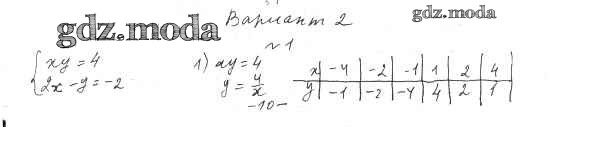 gdz.moda
Вариант 2
gdz.moda
№1
{ xy = 4
2x - y = -2
1) xy = 4
y = 4/x
x | -4 | -2 | -1 | 1 | 2 | 4
y | -1 | -2 | -4 | 4 | 2 | 1
-10-